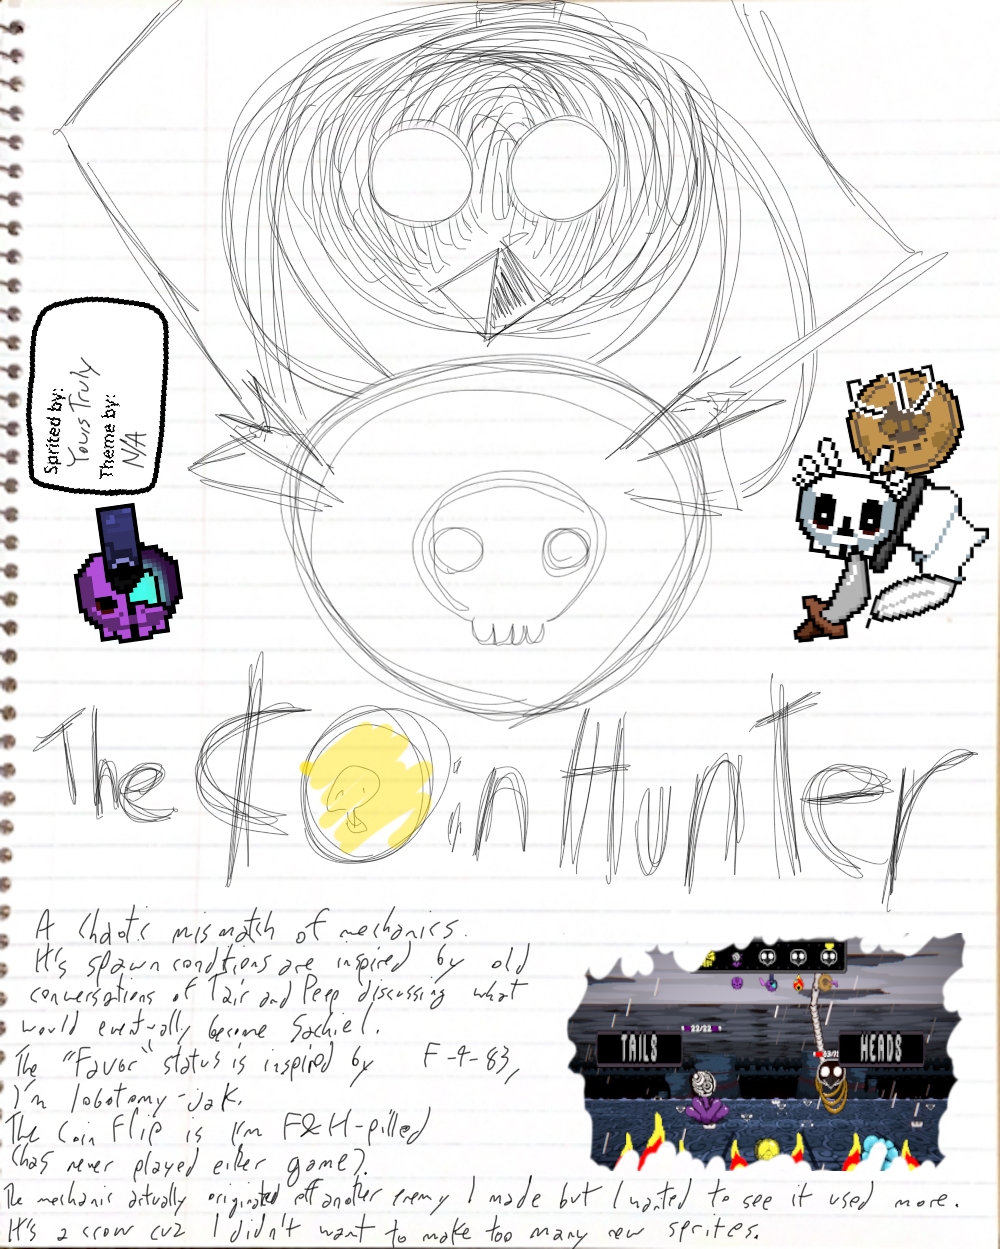 Sprited by:
Yours Truly
Theme by:
N/A
The Coin Hunter
A chaotic mismatch of mechanics.
It's spawn conditions are inspired by old
conversations of Tair and Peep discussing what
would eventually become Sachiel.
The "Favor" status is inspired by F-4-83,
I'm lobotomy-jak.
The Coin Flip is I'm F&H-pilled
(has never played either game).
The mechanic actually originated off another enemy I made but I wanted to see it used more.
It's a crow cuz I didn't want to make too many new sprites.
22/22
TAILS
HEADS